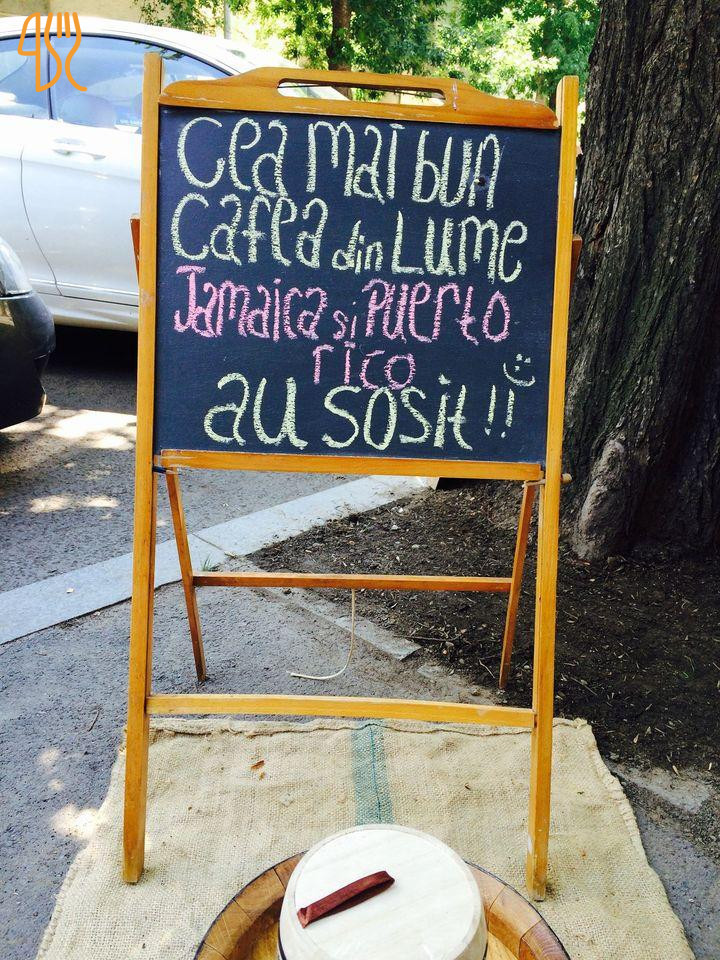 Cea mai bun
Cafea din Lume
Jamaica si Puerto
rico
au sosit!!